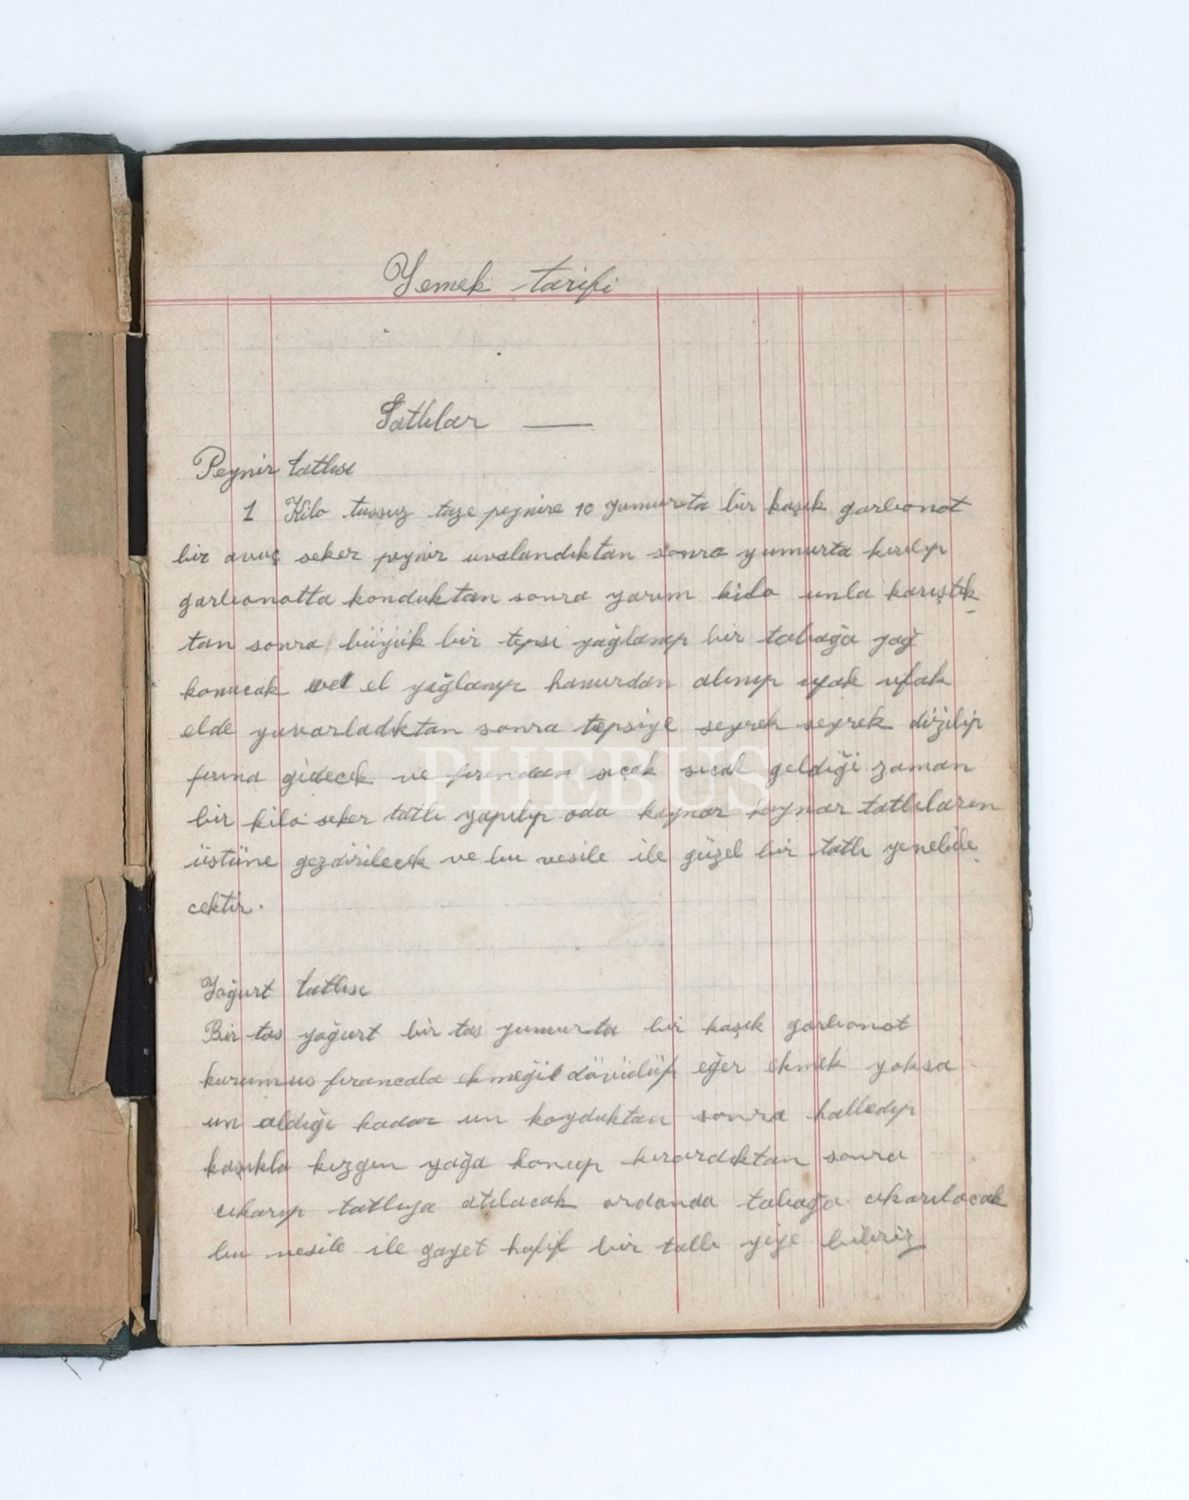 Yemek tarifi
Tatlılar —
Peynir tatlısı
1 Kilo tussuz taze peynire 10 yumurta bir kaşık garbonot
bir avuç seker peynir uvalandıktan sonra yumurta kırılıp
garbonatta konduktan sonra yarım kilo unla karıştık
tan sonra büyük bir tepsi yağlanıp bir tabağa yağ
konucak el yağlanıp hamurdan alınıp ufak
elde yuvarladıktan sonra tepsiye seyrek seyrek dizilip
fırına gidecek ve fırından sıcak sıcak geldiği zaman
bir kilo seker tatlı yapılıp oda kaynar kaynar tatlıların
üstüne gezdirilecek ve bu vesile ile güzel bir tatlı yenebile
cektir.
Yoğurt tatlısı
Bir tas yoğurt bir tas yumurta bir kaşık garbonot
kurumus firancala ekmeği dövülüp eğer ekmek yoksa
un aldığı kadar un koyduktan sonra halledip
kaşıkla kızgın yağa konup kızardıktan sonra
cıkarıp tatlıya atılacak ordanda tabağa cıkarılacak
bu vesile ile gayet hafif bir tatlı yiye biliriz
PHEBUS